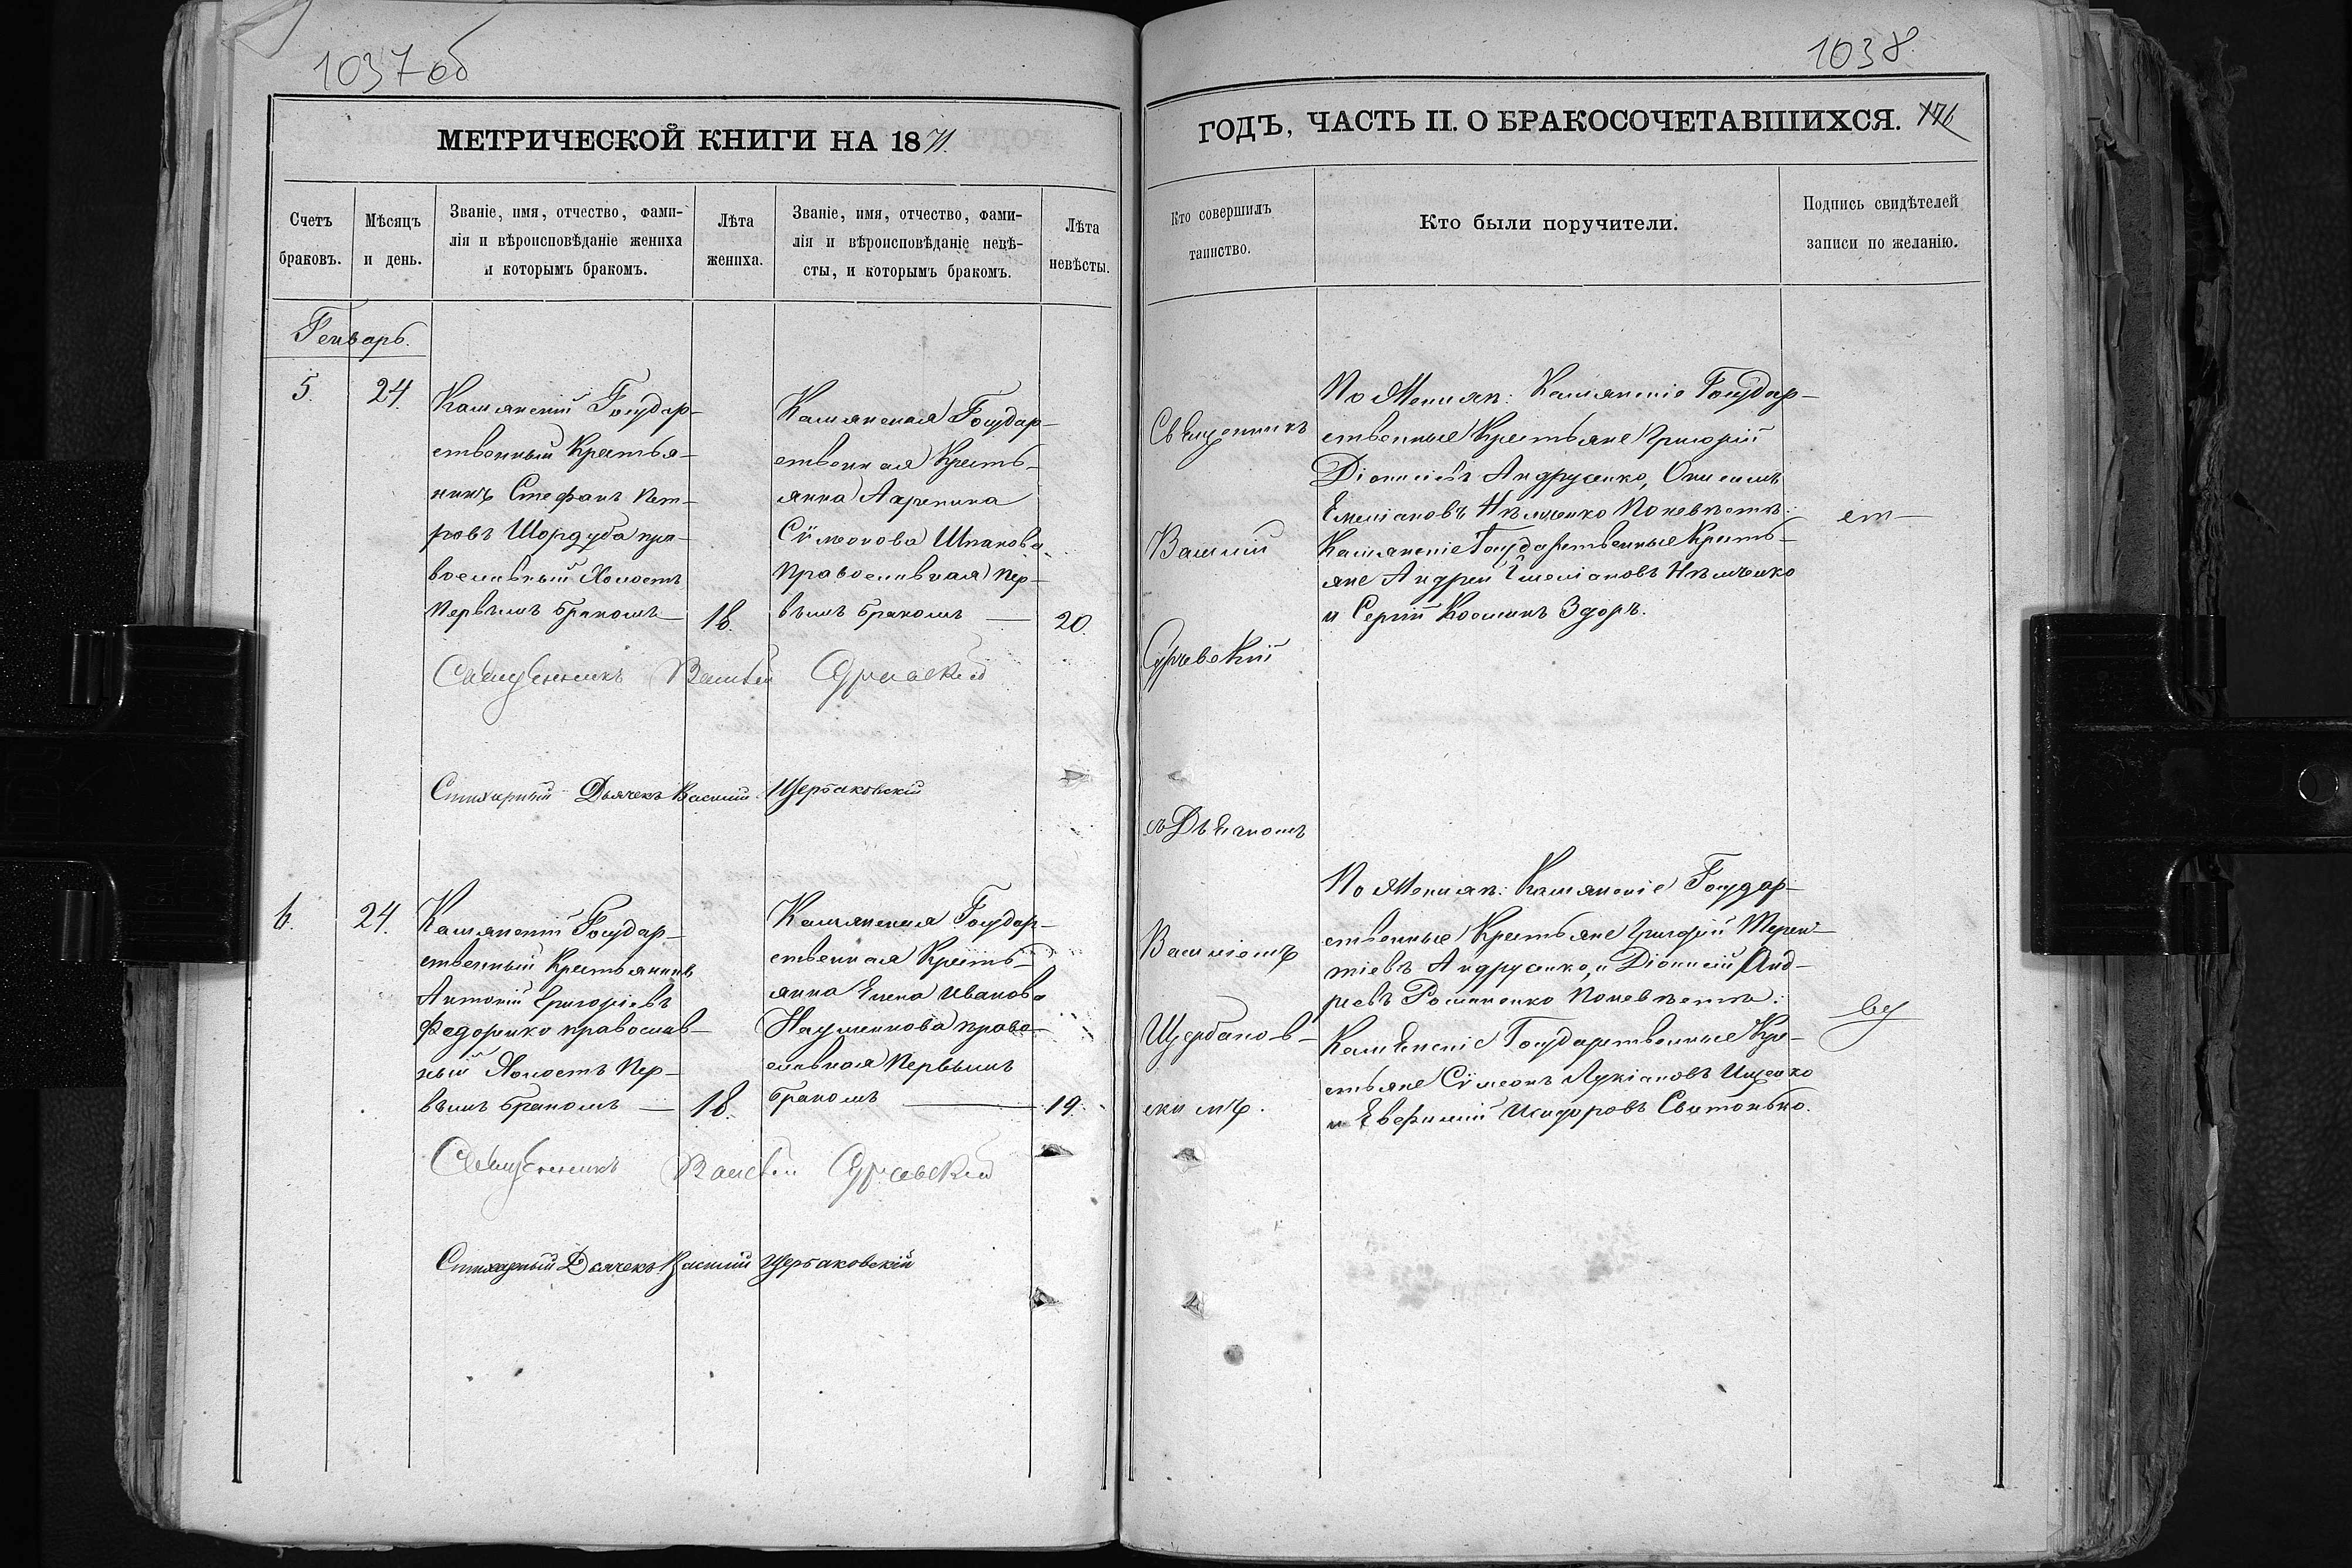 1037 об
МЕТРИЧЕСКОЙ КНИГИ НА 1871.
Счетъ браковъ.
Мѣсяцъ и день.
Званіе, имя, отчество, фами-
лія и вѣроисповѣданіе жениха
и которымъ бракомъ.
Лѣта жениха.
Званіе, имя, отчество, фами-
лія и вѣроисповѣданіе невѣ-
сты, и которымъ бракомъ.
Лѣта невѣсты.
Генварь.
5.
24.
Камянскій Государ-
ственный Крестья-
нинъ Стефанъ Пет-
ровъ Шордуба пра-
вославный Холостъ
первымъ бракомъ
18.
Камянская Государ-
ственная Кресть-
янка Агрепина
Сѵмеонова Шпакова
православная пер-
вымъ бракомъ —
20.
Священникъ Василій
Стихарный Дьячекъ Василій Щербаковскій
6.
24.
Камянскій Государ-
ственный Крестьянинъ
Антоній Григоріевъ
Федоренко православ-
ный Холостъ пер-
вымъ бракомъ —
18.
Камянская Государ-
ственная Кресть-
янка Елена Иванова
Науменкова право-
славная первымъ
бракомъ —
19.
Священникъ Василій
Стихарный Дьячекъ Василій Щербаковскій
1038
ГОДЪ, ЧАСТЬ II. О БРАКОСОЧЕТАВШИХСЯ.
Кто совершилъ
таинство.
Кто были поручители.
Подпись свидѣтелей
записи по желанію.
Священникъ
Василій
съ Дьячкомъ
Василіемъ
Щербаков-
скимъ.
По Женихѣ: Камянскіе Государ-
ственные Крестьяне Григорій
Діонисіевъ Андрусенко, Онисимъ
Емеліановъ Нѣмченко По невѣстѣ:
Камянскіе Государственные Кресть-
яне Андрей Емеліановъ Нѣмченко
и Сергій Космикъ Здоръ.
По Женихѣ: Камянскіе Государ-
ственные Крестьяне Григорій Терен-
тіевъ Андрусенко, и Діонисій Анд-
реевъ Романенко По невѣстѣ:
Камянскіе Государственные Кре-
стьяне Сѵмеонъ Лукіановъ Ищенко
и Евфимій Исидоровъ